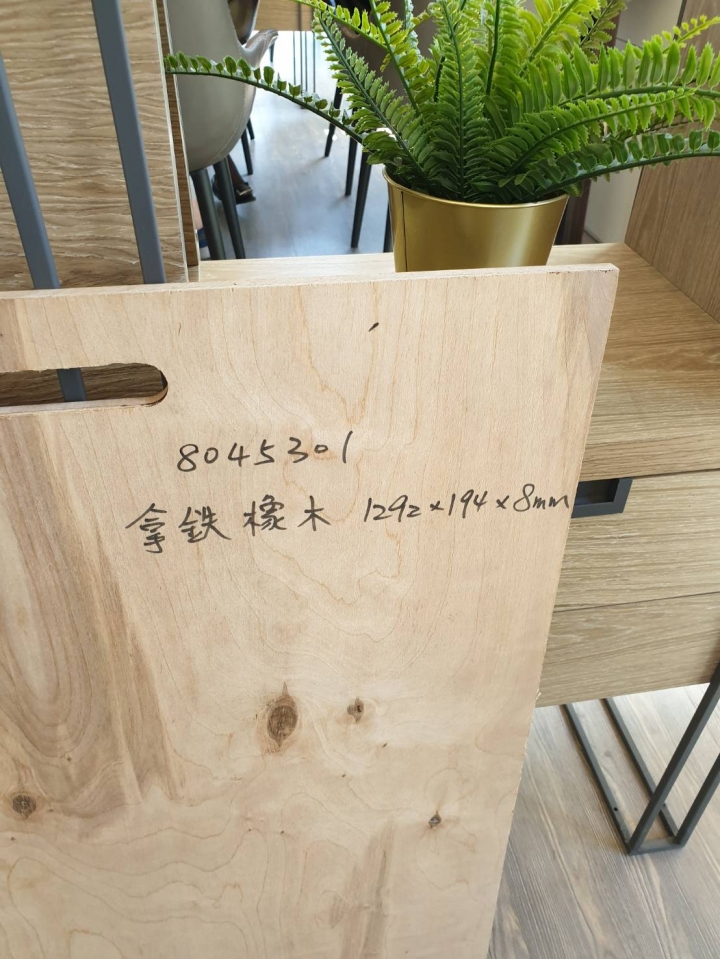 8045301
拿鉄橡木 1292x194x8mm